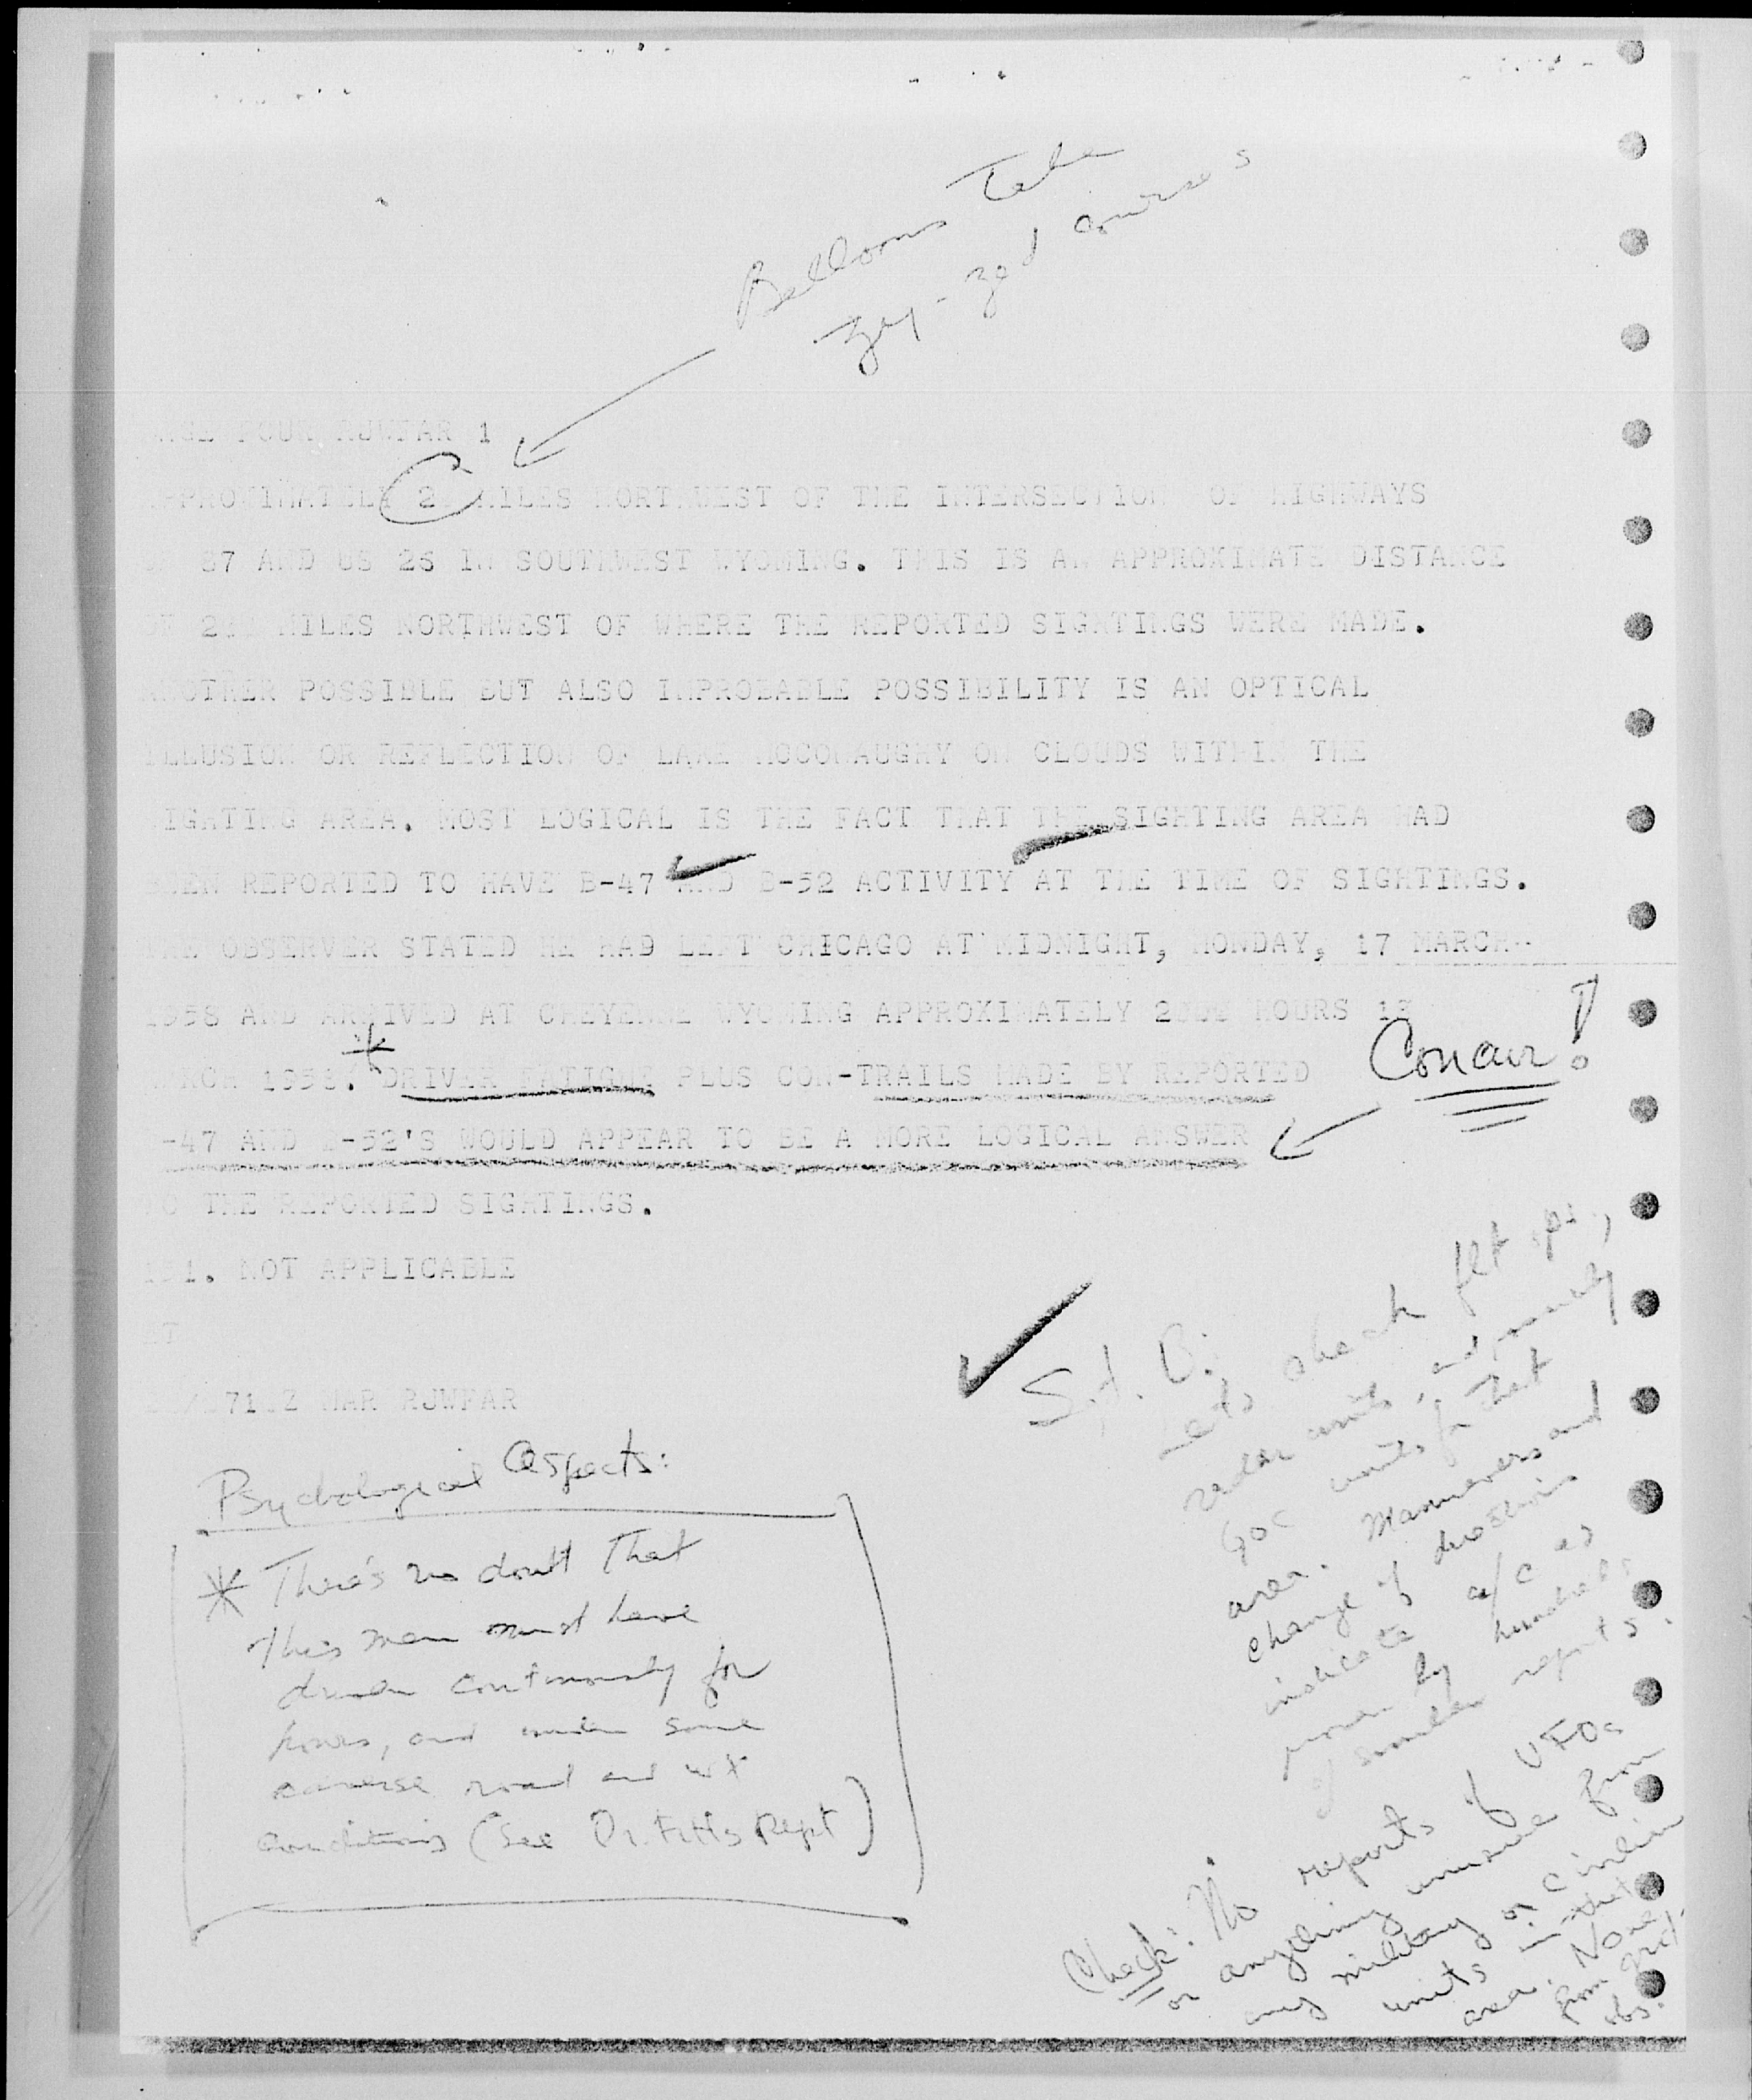 Balloons take
zig-zag courses
PAGE FOUR RJWFAR 1
APPROXIMATELY 2 MILES NORTHWEST OF THE INTERSECTION OF HIGHWAYS
87 AND US 26 IN SOUTHWEST WYOMING. THIS IS AN APPROXIMATE DISTANCE
OF 2 MILES NORTHWEST OF WHERE THE REPORTED SIGHTINGS WERE MADE.
ANOTHER POSSIBLE BUT ALSO IMPROBABLE POSSIBILITY IS AN OPTICAL
ILLUSION OR REFLECTION OF LAKE MCCONAUGHY ON CLOUDS WITHIN THE
SIGHTING AREA. MOST LOGICAL IS THE FACT THAT THE SIGHTING AREA HAD
BEEN REPORTED TO HAVE B-47 AND B-52 ACTIVITY AT THE TIME OF SIGHTINGS.
THE OBSERVER STATED HE HAD LEFT CHICAGO AT MIDNIGHT, MONDAY, 17 MARCH
1958 AND ARRIVED AT CHEYENNE WYOMING APPROXIMATELY HOURS 18
MARCH 1958. * DRIVER FATIGUE PLUS CON-TRAILS MADE BY REPORTED
Concur!
B-47 AND B-52'S WOULD APPEAR TO BE A MORE LOGICAL ANSWER
TO THE REPORTED SIGHTINGS.
NOT APPLICABLE
BT
MAR RJWFAR
Psychological Aspects:
* There's no doubt that
this man must have
driven continuously for
hours, and under some
adverse road and wx
conditions (See Dr. Fitts Rept)
Sgt. O:
Let's check flt ops,
radar units, and possibly
GOC units for that
area. Manuevers and
change of directions
indicate a/c as
proven by hundreds
of similar reports.
Check: No reports of UFOs
or anything unusual from
any military or civilian
units in that
area. None
from grd.
obs.